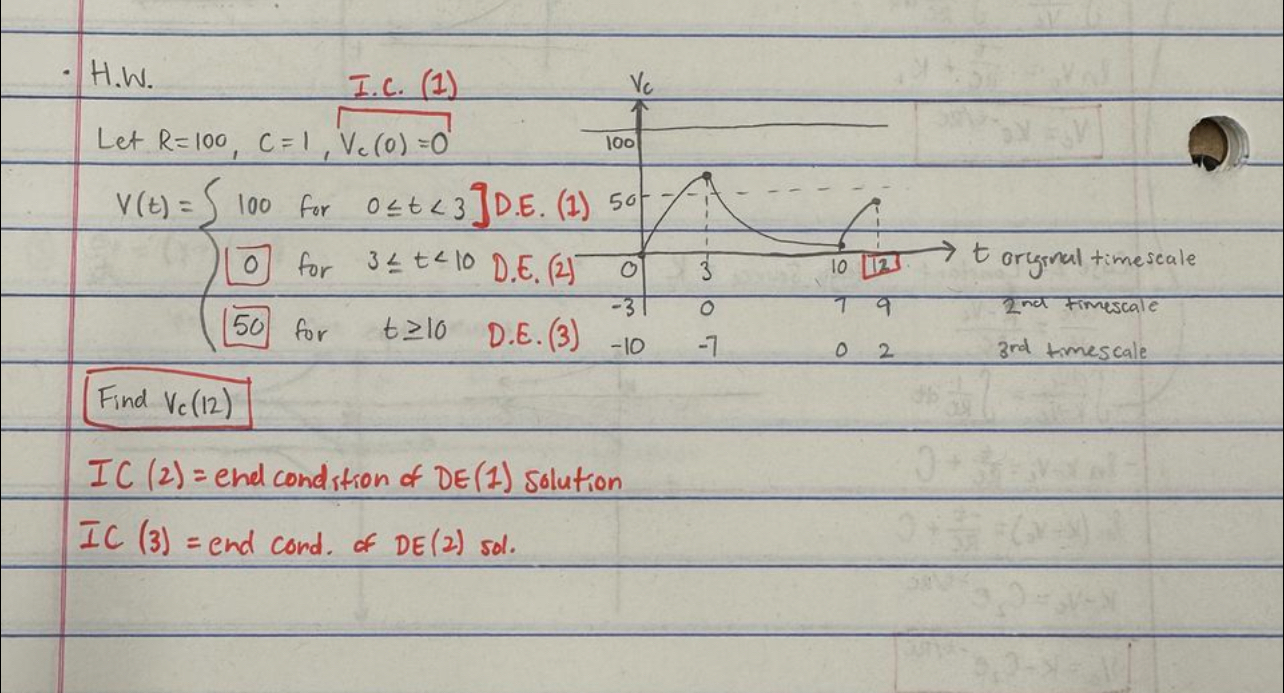 · H.W.
I.C. (1)
Let R=100, C=1, Vc(0)=0
V(t) = { 100 for 0≤t<3 ] D.E. (1)
0 for 3≤t<10 D.E. (2)
50 for t≥10 D.E. (3)
Find Vc(12)
Vc
100
50
0 3 10 12 t original timescale
-3 0 7 9 2nd timescale
-10 -7 0 2 3rd timescale
IC (2) = end condition of DE(1) solution
IC (3) = end cond. of DE(2) sol.